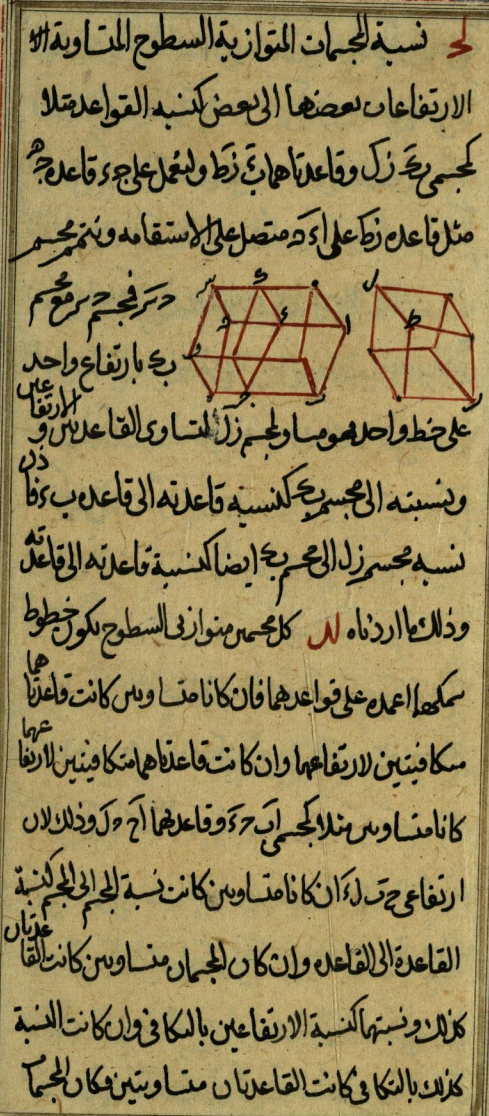 لح نسبة المجسمات المتوازية السطوح المتساوية الا
الارتفاعات بعضها الى بعض كنسبة القواعد مثلا
كمجسمى زل وقاعدتاهما زط ولنعمل على قاعدة
مثل قاعدة زط على متصل على الاستقامة ونتمم مجسم
فمجسم مع مجسم
بارتفاع واحد
على خط واحد فهو مساو لمجسم زل لتساوى القاعدتين و الارتفاعين
ونسبته الى مجسم كنسبة قاعدته الى قاعدة فاذن
نسبة مجسم زل الى مجسم ايضا كنسبة قاعدته الى قاعدته
وذلك ما اردناه لد كل مجسمين متوازيى السطوح يكون خطوط
سمكهما اعمدة على قواعدهما فان كانا متساويين كانت قاعدتاهما
متكافيتين لارتفاعهما وان كانت قاعدتاهما متكافيتين لارتفاعهما
كانا متساويين مثلا كمجسمى وقاعدتهما وذلك لان
ارتفاعى ان كانا متساويين كانت نسبة المجسم الى المجسم كنسبة
القاعدة الى القاعدة وان كان المجسمان متساويين كانت القاعدتان
كذلك ونسبتهما كنسبة الارتفاعين بالتكافى وان كانت النسبة
كذلك بالتكافى كانت القاعدتان متساويتين فكان المجسما